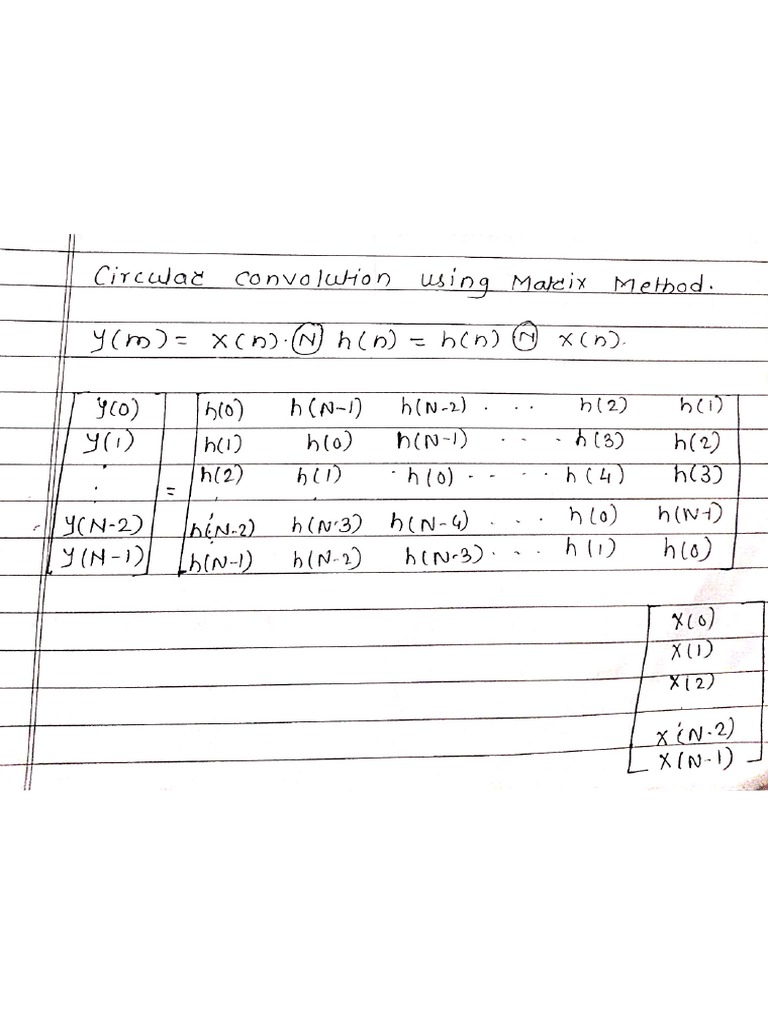 Circular convolution using Matrix Method.
y(m) = x(n). Ⓝ h(n) = h(n) Ⓝ x(n).
y(0) h(0) h(N-1) h(N-2) . .. h(2) h(1)
y(1) h(1) h(0) h(N-1) ... h(3) h(2)
: = h(2) h(1) h(0) .... h(4) h(3)
y(N-2) h(N-2) h(N-3) h(N-4) ... h(0) h(N-1)
y(N-1) h(N-1) h(N-2) h(N-3) ... h(1) h(0)
x(0)
x(1)
x(2)
x(N-2)
x(N-1)